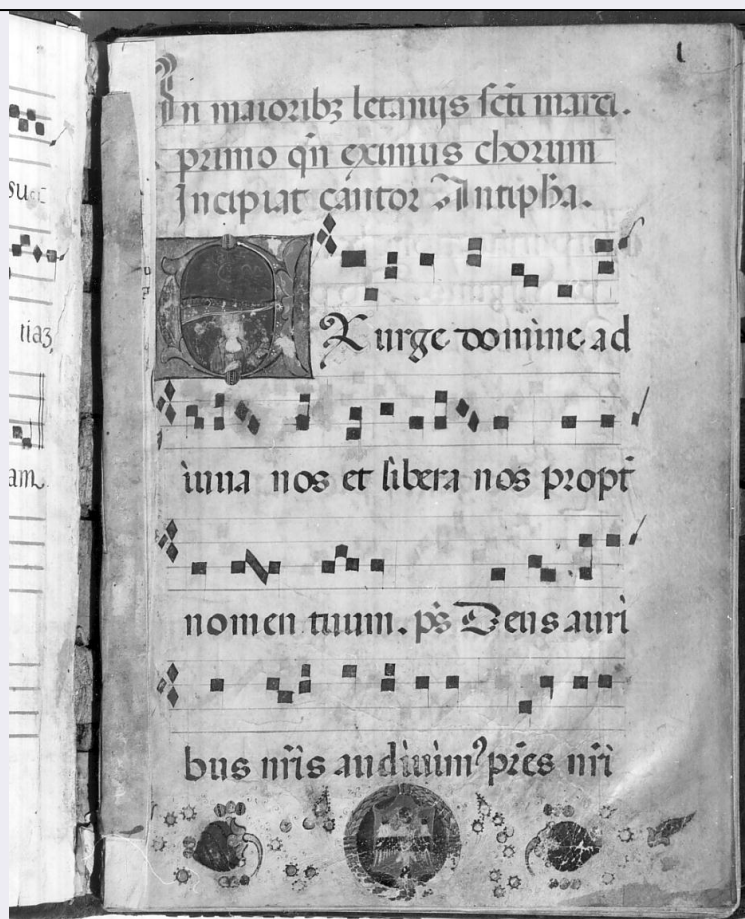 1
In maioribꝫ letanijs scti marci.
primo qn eximus chorum
Incipiat cantor Antipha.
EXurge domine ad
iuua nos et libera nos propt
nomen tuum. ps Deus auri
bus nris audiuim⁹ pres nri
su
tiaꝫ
am